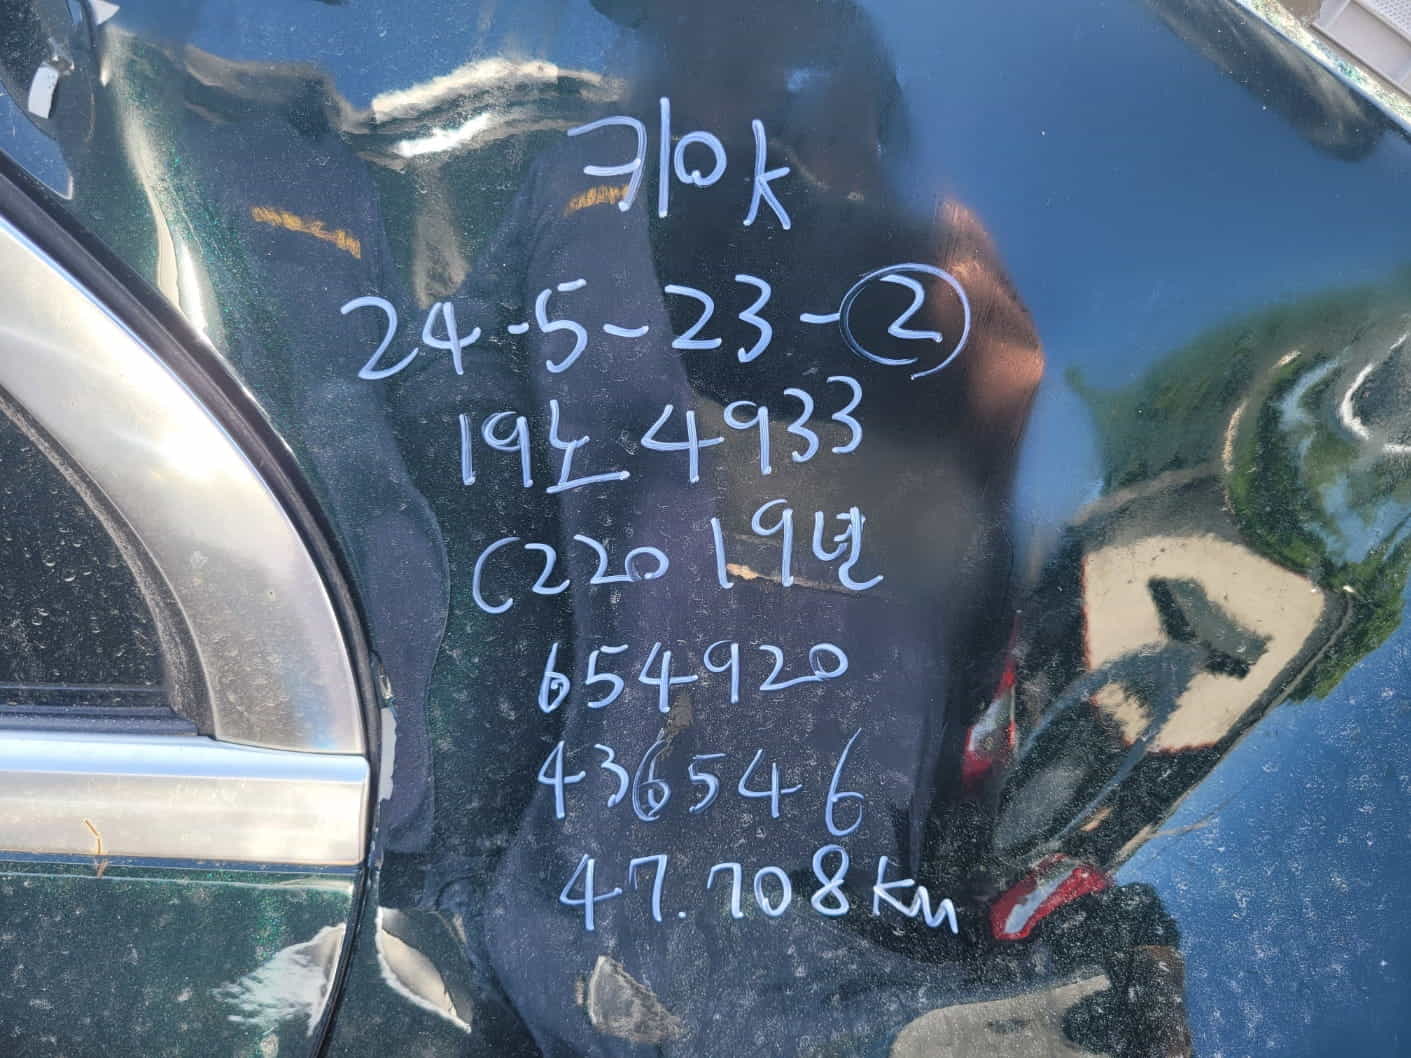 키ㅇk
24-5-23-②
19노 4933
C220 19년
654920
436546
47.708km